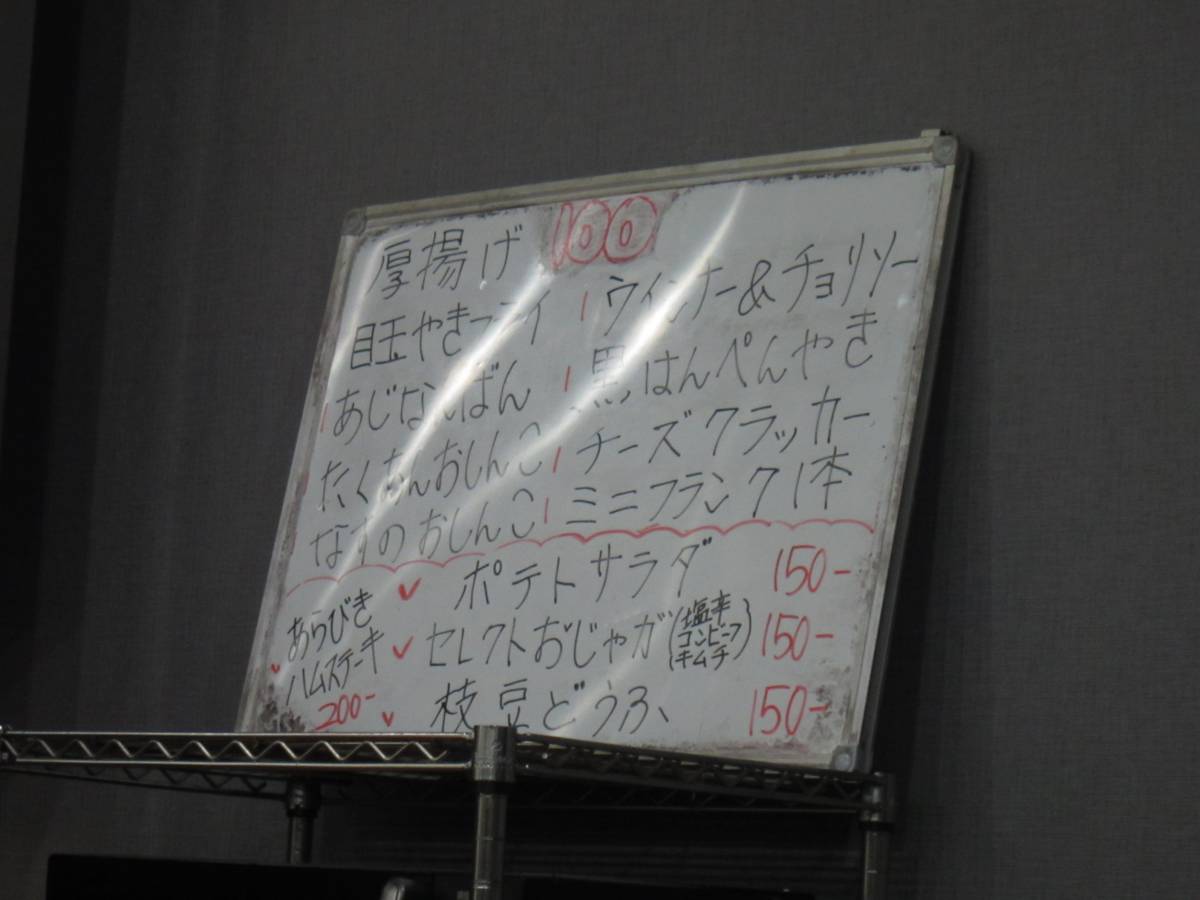 厚揚げ 100
目玉やきっ ウインナー&チョリソー
あじなんばん 黒はんぺんやき
たくあんおしんこ チーズクラッカー
なすのおしんこ ミニフランク1本
ポテトサラダ 150-
あらびき
ハムステーキ
200-
セレクトおじゃが(塩辛 コンビーフ キムチ) 150-
枝豆どうふ 150-